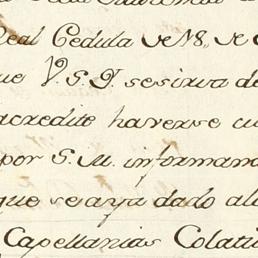 Real Cedula de
que V. S. Y. se sirva de
acredite haverse cu
por S. M. informan
que se aya dado al
Capellanias Colati